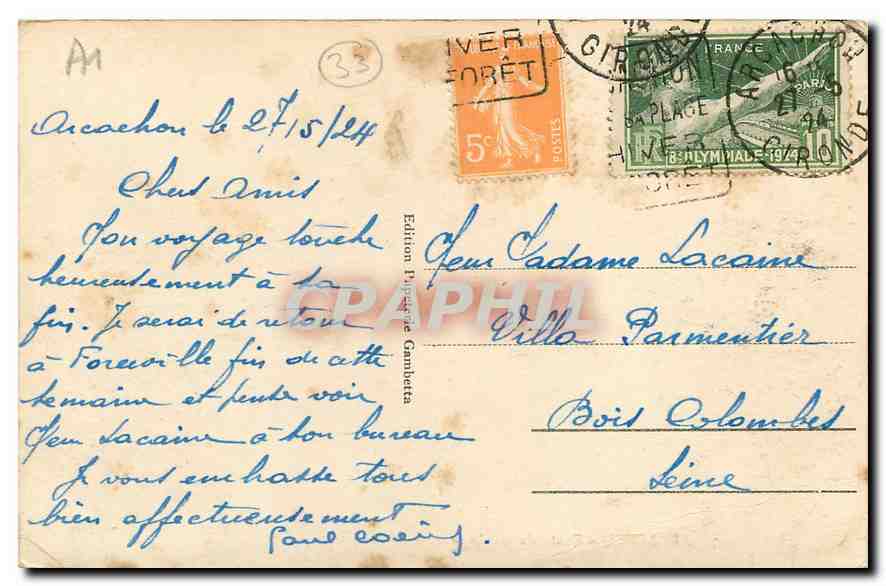 A1
33
IVER
FORÊT
24
GIRONDE
5c
POSTES
FRANCE
PARIS
PLAGE
IVER
8e OLYMPIADE-1924
10
ARCACHON
16
27 - 5
24
GIRONDE
Arcachon le 27/5/24
Chers Amis
Mon voyage touche
heureusement à sa
fin. Je serai de retour
à Foreville fin de cette
semaine et pense voir
Mr Lacaine à son bureau
Je vous embrasse tous
bien affectueusement
Paul
Edition Papeterie Gambetta
CPAPHIL
Madame Lacaine
Villa Parmentier
Bois Colombes
Seine